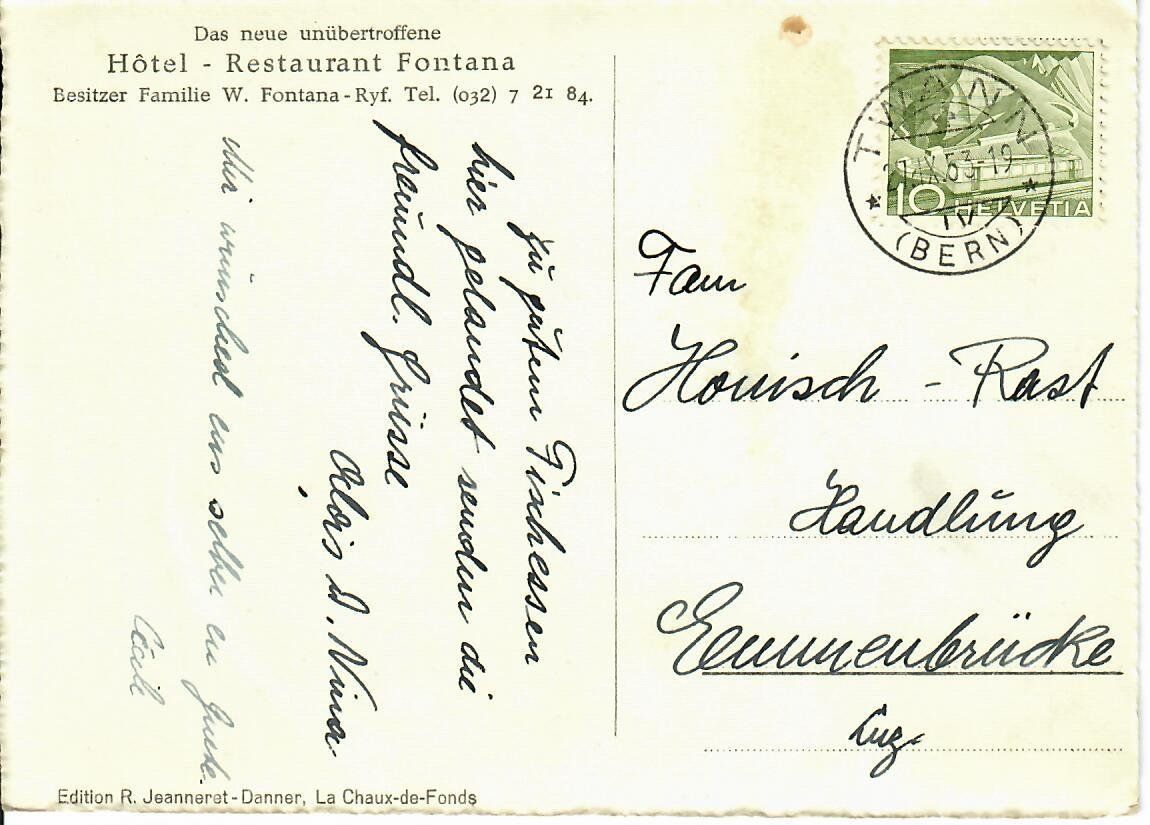 Das neue unübertroffene
Hôtel - Restaurant Fontana
Besitzer Familie W. Fontana-Ryf. Tel. (032) 7 21 84.
Zu gutem Fischessen
hier gelandet senden die
freundl. Grüsse
Alois u. Nina.
Mir wünsched eus selber en Guete.
Cécile
Edition R. Jeanneret-Danner, La Chaux-de-Fonds
TWANN
IX.53-19
(BERN)
10 HELVETIA
Fam
Honisch - Rast
Handlung
Emmenbrücke
Luz.